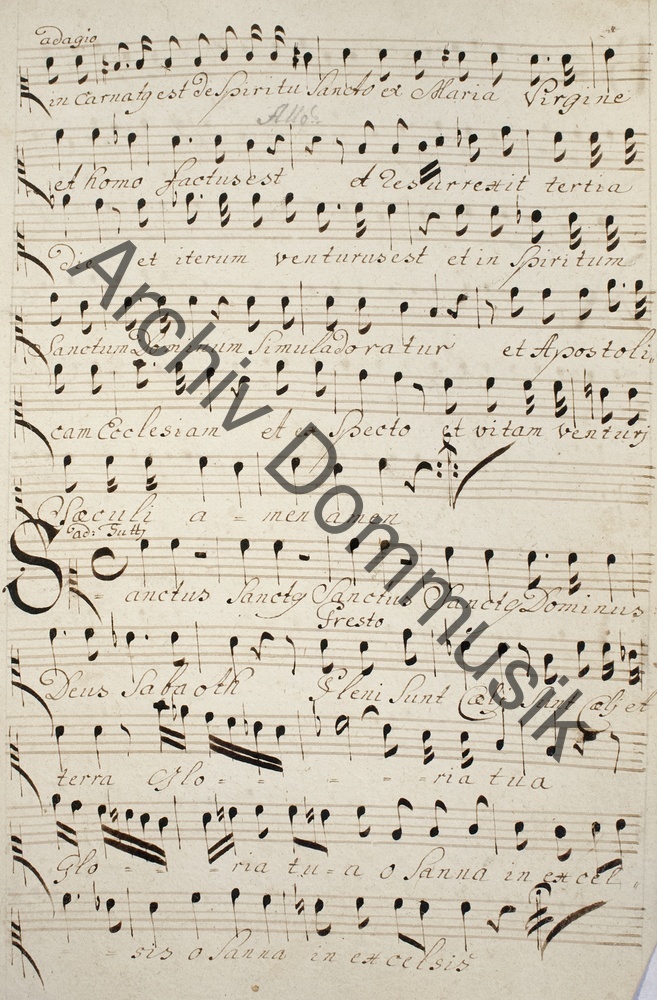 adagio
incarnatq est de Spiritu Sancto ex Maria Virgine
Allo:
et homo factus est et resurrexit tertia
die et iterum venturus est et in Spiritum
Sanctum Dominum Simul adoratur et Apostoli,,
cam Ecclesiam et ex Specto et vitam venturj
Sæculi a = men amen
ad: Tutti
Sanctus Sanctq Sanctus Sanctq Dominus
Presto
Deus Sabaoth Pleni Sunt Cælj Sunt Cælj et
terra Glo = = - - - = ria tua
Glo - - - ria tu = a o Sanna in excel,,
sis o Sanna in excelsis
Archiv Dommusik